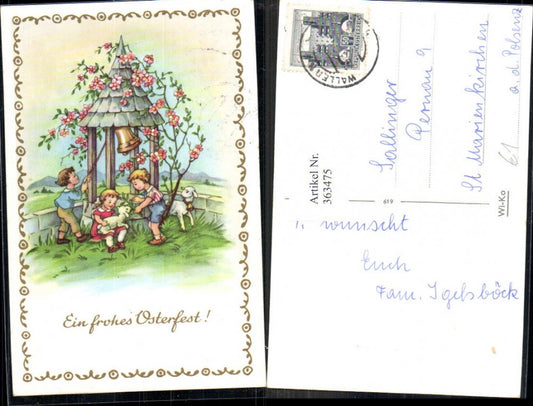 Ein frohes Osterfest!
WALLER
Sallinger
Pernau 9
St Marienkirchen
a. d. Polsenz
61
Artikel Nr.
363475
619
Wi-Ko
wünscht
Euch
Fam. Igelsböck